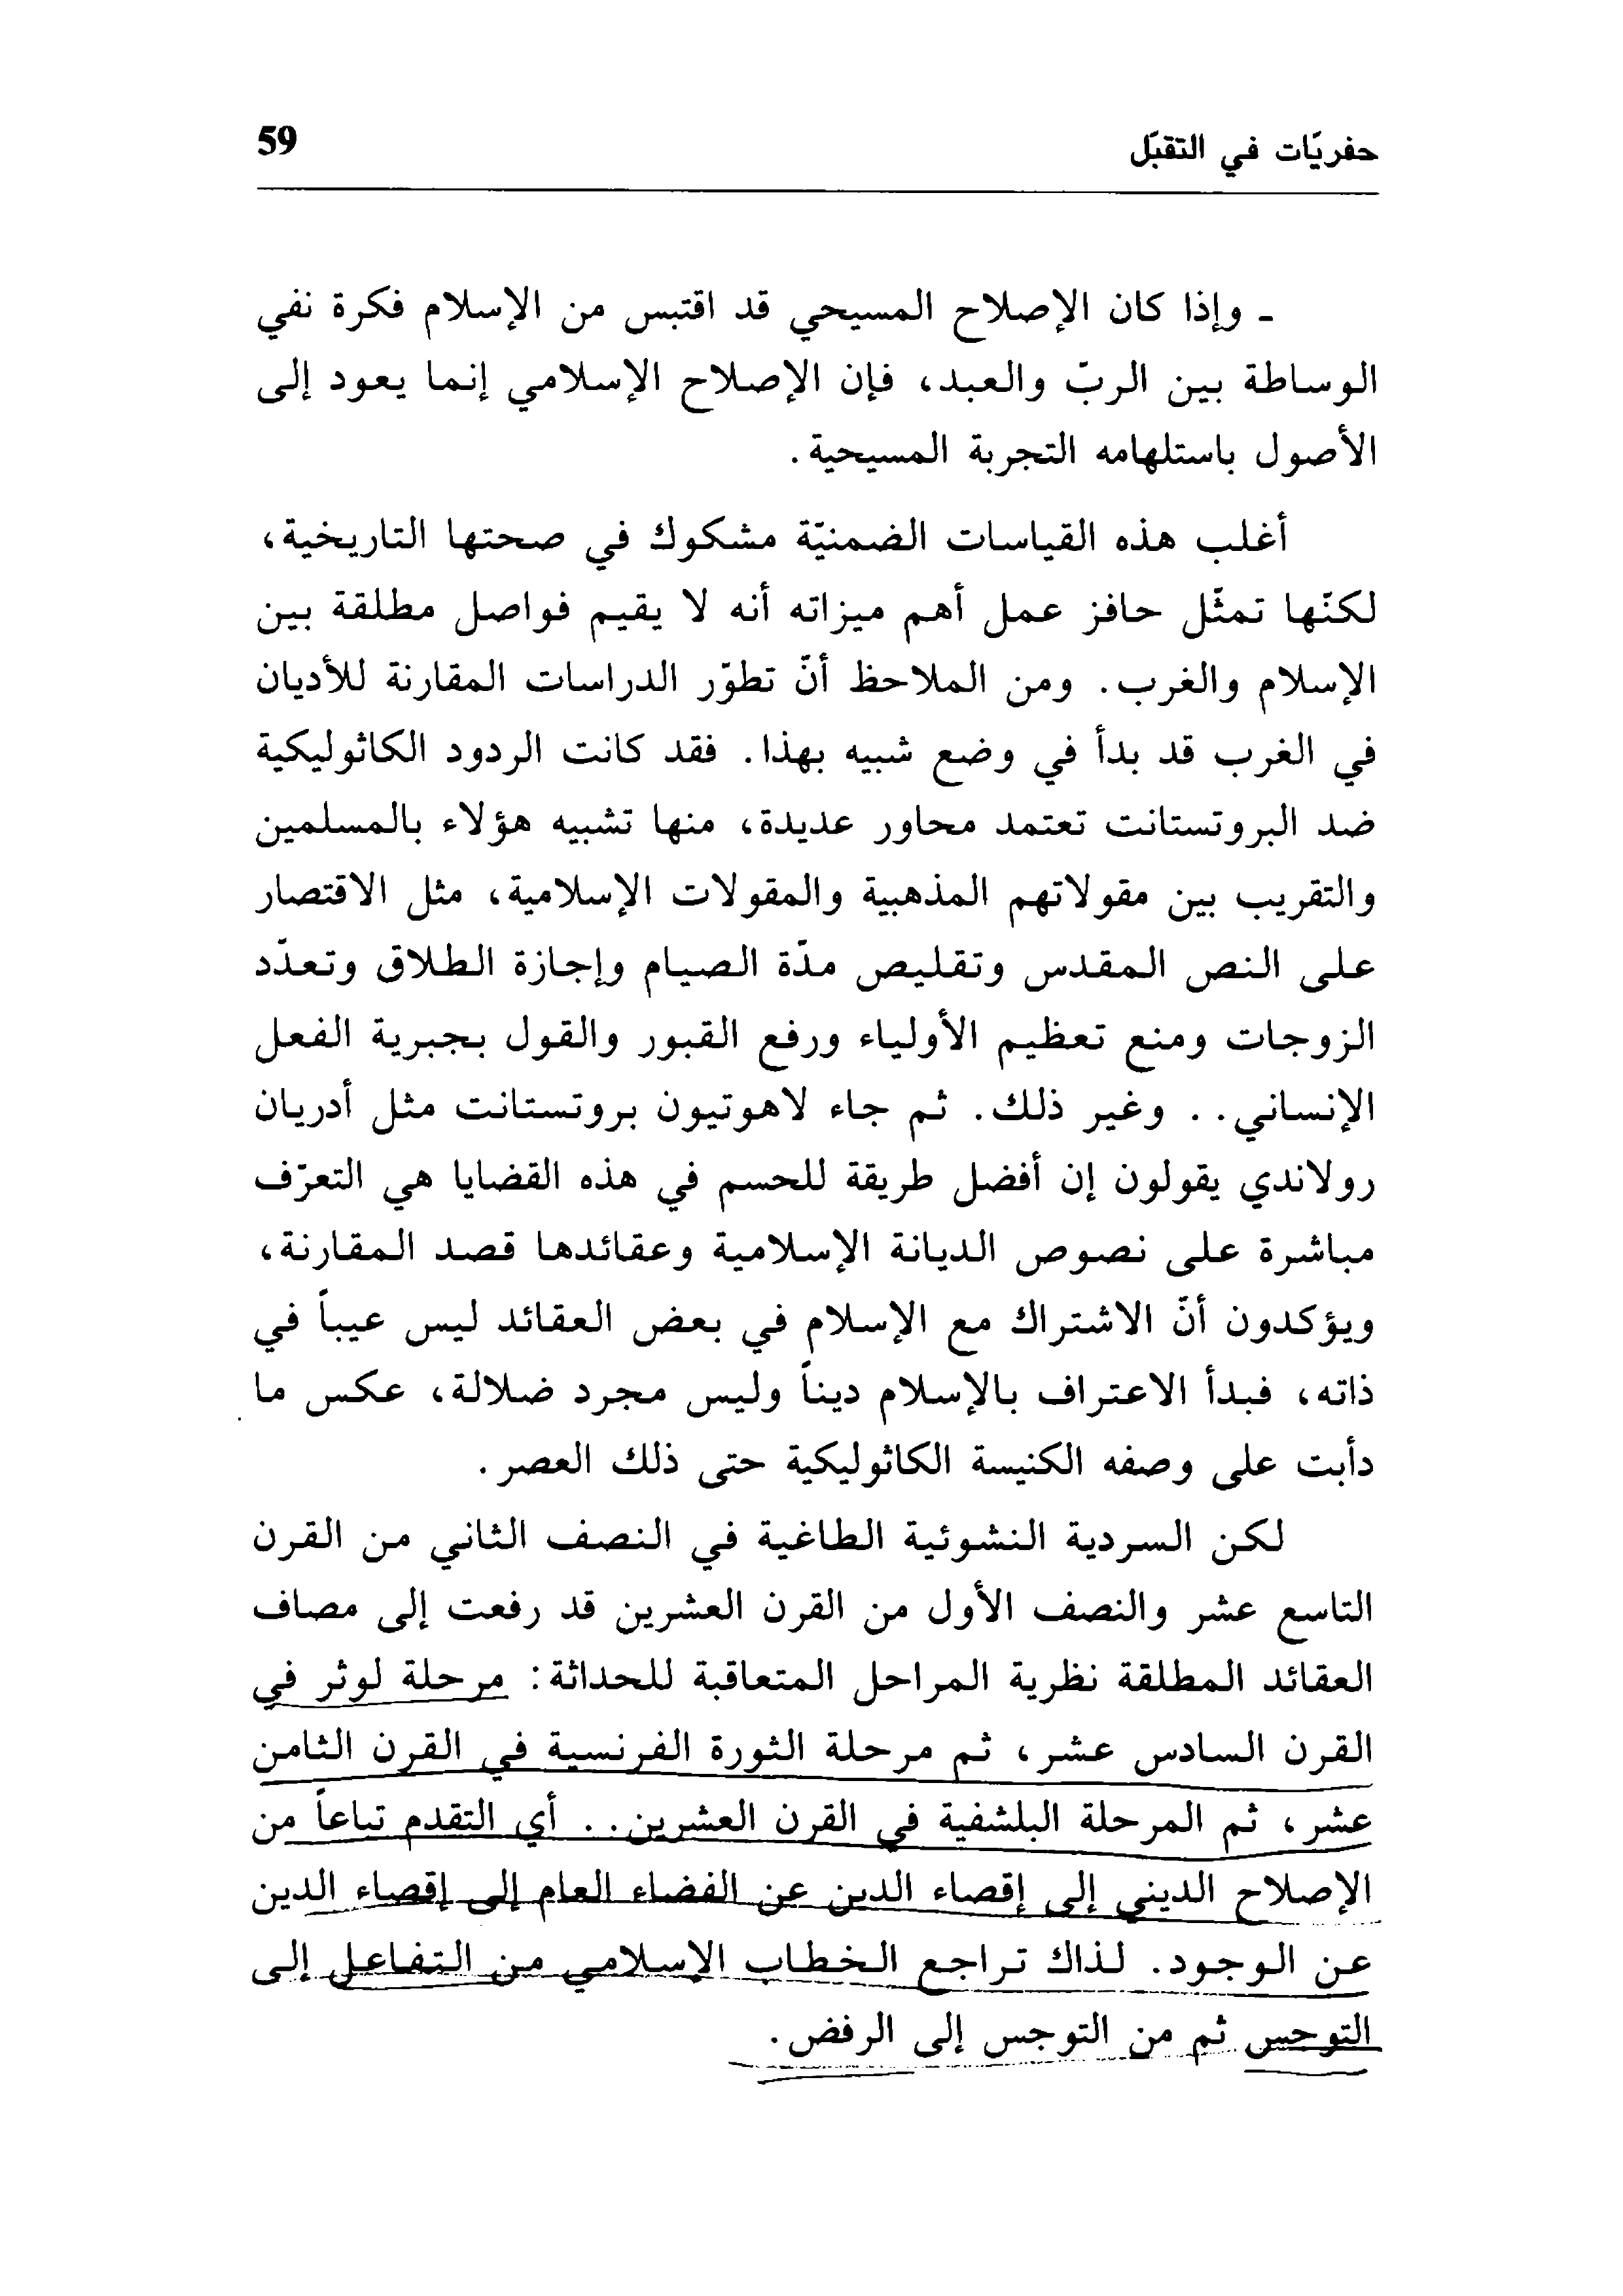 حفريّات في التقبّل
59
ـ وإذا كان الإصلاح المسيحي قد اقتبس من الإسلام فكرة نفي
الوساطة بين الربّ والعبد، فإن الإصلاح الإسلامي إنما يعود إلى
الأصول باستلهامه التجربة المسيحية.
أغلب هذه القياسات الضمنيّة مشكوك في صحتها التاريخية،
لكنّها تمثّل حافز عمل أهم ميزاته أنه لا يقيم فواصل مطلقة بين
الإسلام والغرب. ومن الملاحظ أنّ تطوّر الدراسات المقارنة للأديان
في الغرب قد بدأ في وضع شبيه بهذا. فقد كانت الردود الكاثوليكية
ضد البروتستانت تعتمد محاور عديدة، منها تشبيه هؤلاء بالمسلمين
والتقريب بين مقولاتهم المذهبية والمقولات الإسلامية، مثل الاقتصار
على النص المقدس وتقليص مدّة الصيام وإجازة الطلاق وتعدّد
الزوجات ومنع تعظيم الأولياء ورفع القبور والقول بجبرية الفعل
الإنساني.. وغير ذلك. ثم جاء لاهوتيون بروتستانت مثل أدريان
رولاندي يقولون إن أفضل طريقة للحسم في هذه القضايا هي التعرّف
مباشرة على نصوص الديانة الإسلامية وعقائدها قصد المقارنة،
ويؤكدون أنّ الاشتراك مع الإسلام في بعض العقائد ليس عيباً في
ذاته، فبدأ الاعتراف بالإسلام ديناً وليس مجرد ضلالة، عكس ما
دأبت على وصفه الكنيسة الكاثوليكية حتى ذلك العصر.
لكن السردية النشوئية الطاغية في النصف الثاني من القرن
التاسع عشر والنصف الأول من القرن العشرين قد رفعت إلى مصاف
العقائد المطلقة نظرية المراحل المتعاقبة للحداثة: مرحلة لوثر في
القرن السادس عشر، ثم مرحلة الثورة الفرنسية في القرن الثامن
عشر، ثم المرحلة البلشفية في القرن العشرين.. أي التقدم تباعاً من
الإصلاح الديني إلى إقصاء الدين عن الفضاء العام إلى إقصاء الدين
عن الوجود. لذاك تراجع الخطاب الإسلامي من التفاعل إلى
التوجس ثم من التوجس إلى الرفض.